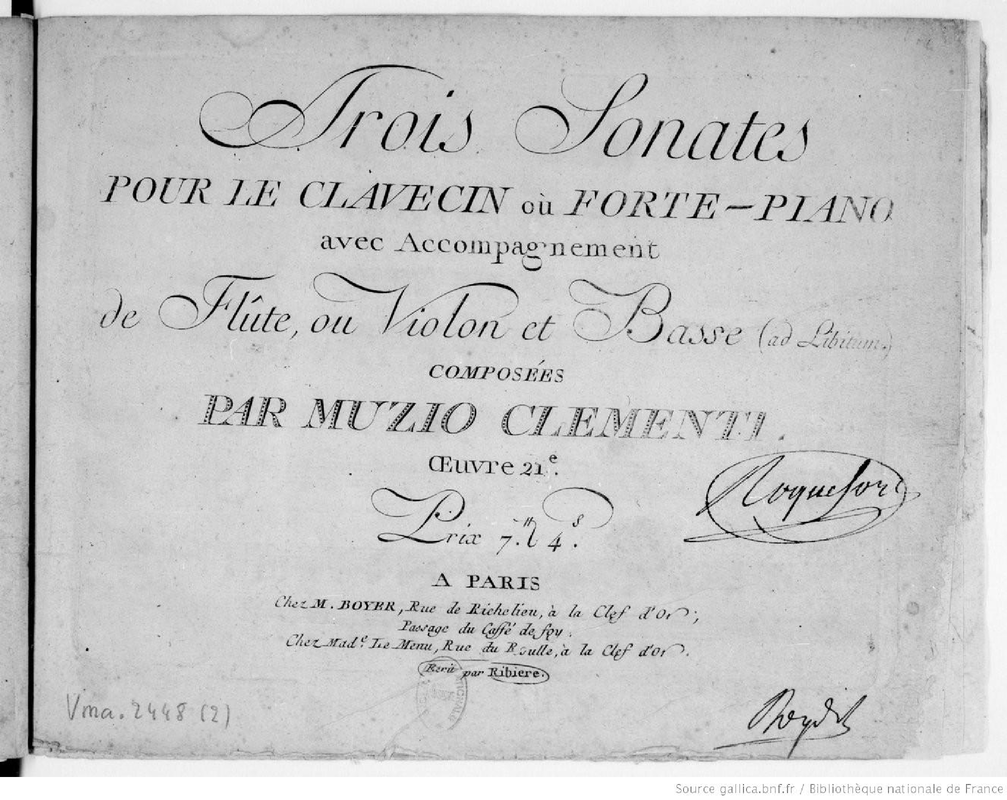 Trois Sonates
POUR LE CLAVECIN ou FORTE-PIANO
avec Accompagnement
de Flûte, ou Violon et Basse (ad Libitum.)
COMPOSÉES
PAR MUZIO CLEMENTI.
Œuvre 21e.
Roquefort
Prix 7.tt 4.s
A PARIS
Chez M. BOYER, Rue de Richelieu, à la Clef d'Or;
Passage du Caffé de foy.
Chez Made. Le Menu, Rue du Roulle, à la Clef d'Or.
Ecrit par Ribiere.
Vma. 2448 (2)
Source gallica.bnf.fr / Bibliothèque nationale de France